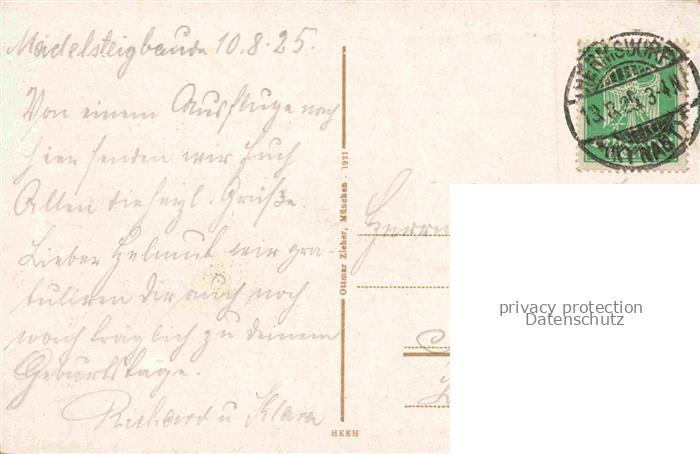 Mädelsteigbaude 10.8.25.
Von einem Ausfluge nach
hier senden wir Euch
Allen die herzl. Grüße.
Lieber Helmut wir gra-
tuliren Dir auch noch
nachträglich zu deinem
Geburtstage.
Richard u Klara
Ottmar Zieher, München - 1921
HEEH
HERMSDORF
(KYNAST)
Herrn
privacy protection
Datenschutz